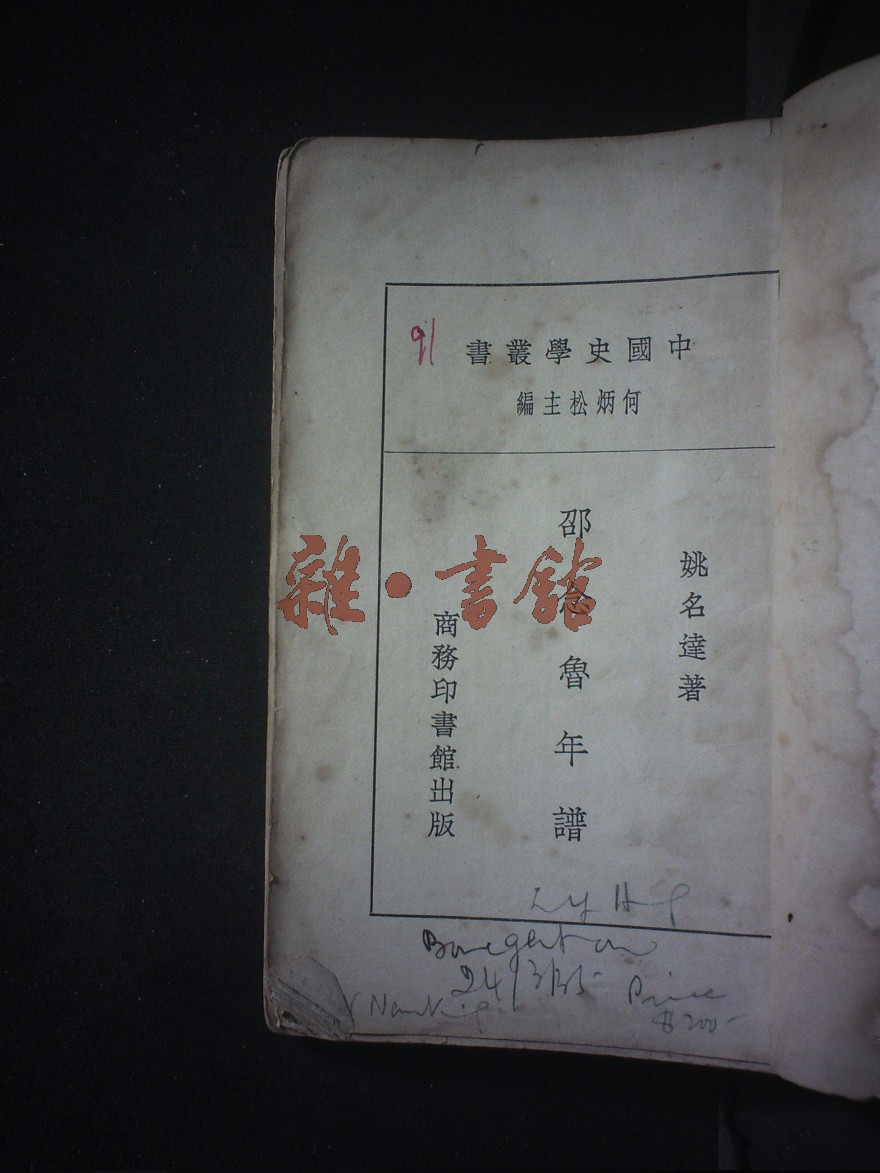 中國史學叢書
91
何炳松主編
姚名達著
邵念魯年譜
商務印書館出版
雜·書館
Bought on
24/3/35
Price
$200-
Nanking